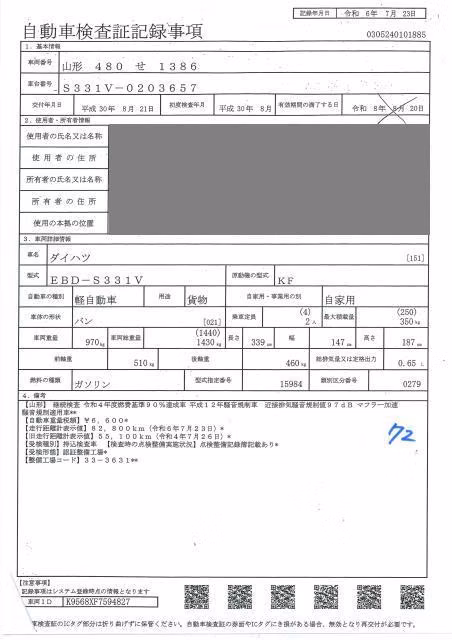 記録年月日 令和 6年 7月 23日
自動車検査証記録事項
0305240101885
1. 基本情報
車両番号 山形 480 せ 1386
車台番号 S331V-0203657
交付年月日 平成 30年 8月 21日 初度検査年月 平成 30年 8月 有効期間の満了する日 令和 8年 8月 20日
2. 使用者・所有者情報
使用者の氏名又は名称
使用者の住所
所有者の氏名又は名称
所有者の住所
使用の本拠の位置
3. 車両詳細情報
車名 ダイハツ [151]
型式 EBD-S331V 原動機の型式 KF
自動車の種別 軽自動車 用途 貨物 自家用・事業用の別 自家用
車体の形状 バン [021] 乗車定員 (4) 2人 最大積載量 (250) 350kg
車両重量 970kg 車両総重量 (1440) 1430kg 長さ 339cm 幅 147cm 高さ 187cm
前軸重 510kg 後軸重 460kg 総排気量又は定格出力 0.65 L
燃料の種類 ガソリン 型式指定番号 15984 類別区分番号 0279
4. 備考
【山形】 継続検査 令和4年度燃費基準90%達成車 平成12年騒音規制車 近接排気騒音規制値97dB マフラー加速
騒音規制適用車**
【自動車重量税額】 ¥6,600*
【走行距離計表示値】 82,800km (令和6年7月23日)*
【旧走行距離計表示値】 55,100km (令和4年7月26日)*
【受検種別】 持込検査車 【検査時の点検整備実施状況】 点検整備記録簿記載あり*
【受検形態】 認証整備工場*
【整備工場コード】 33-3631**
72
【注意事項】
記録事項はシステム登録時点の情報となります
車両ID K9568XF7594827
車検査証のICタグ部分は折り曲げずに保管ください。自動車検査証の券面やICタグにき損がある場合、無効となり再交付が必要です。